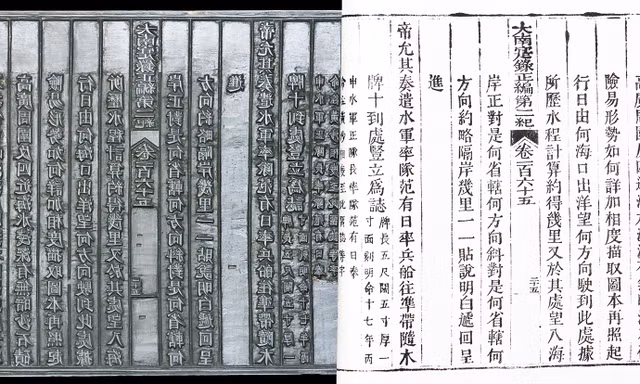 高廣周圍及四近海水淺深有無暗沙石磧
險易形勢如何詳加相度描取圖本再照起
行日由何海口出洋望何方向駛到此處據
所歷水程計算約得幾里又於其處望入海
大南寔錄正編第二紀 卷一百六十五 二十五
岸正對是何省轄何方向斜對是何省轄何
方向約略隔岸幾里一一貼說明白遞回呈
進
帝允其奏遣水軍率隊范有日率兵船往準帶隨水
牌十到處豎立爲誌 牌長五尺闊五寸厚一
寸面刻明命十七年丙
申水軍正隊長率隊范有日奉